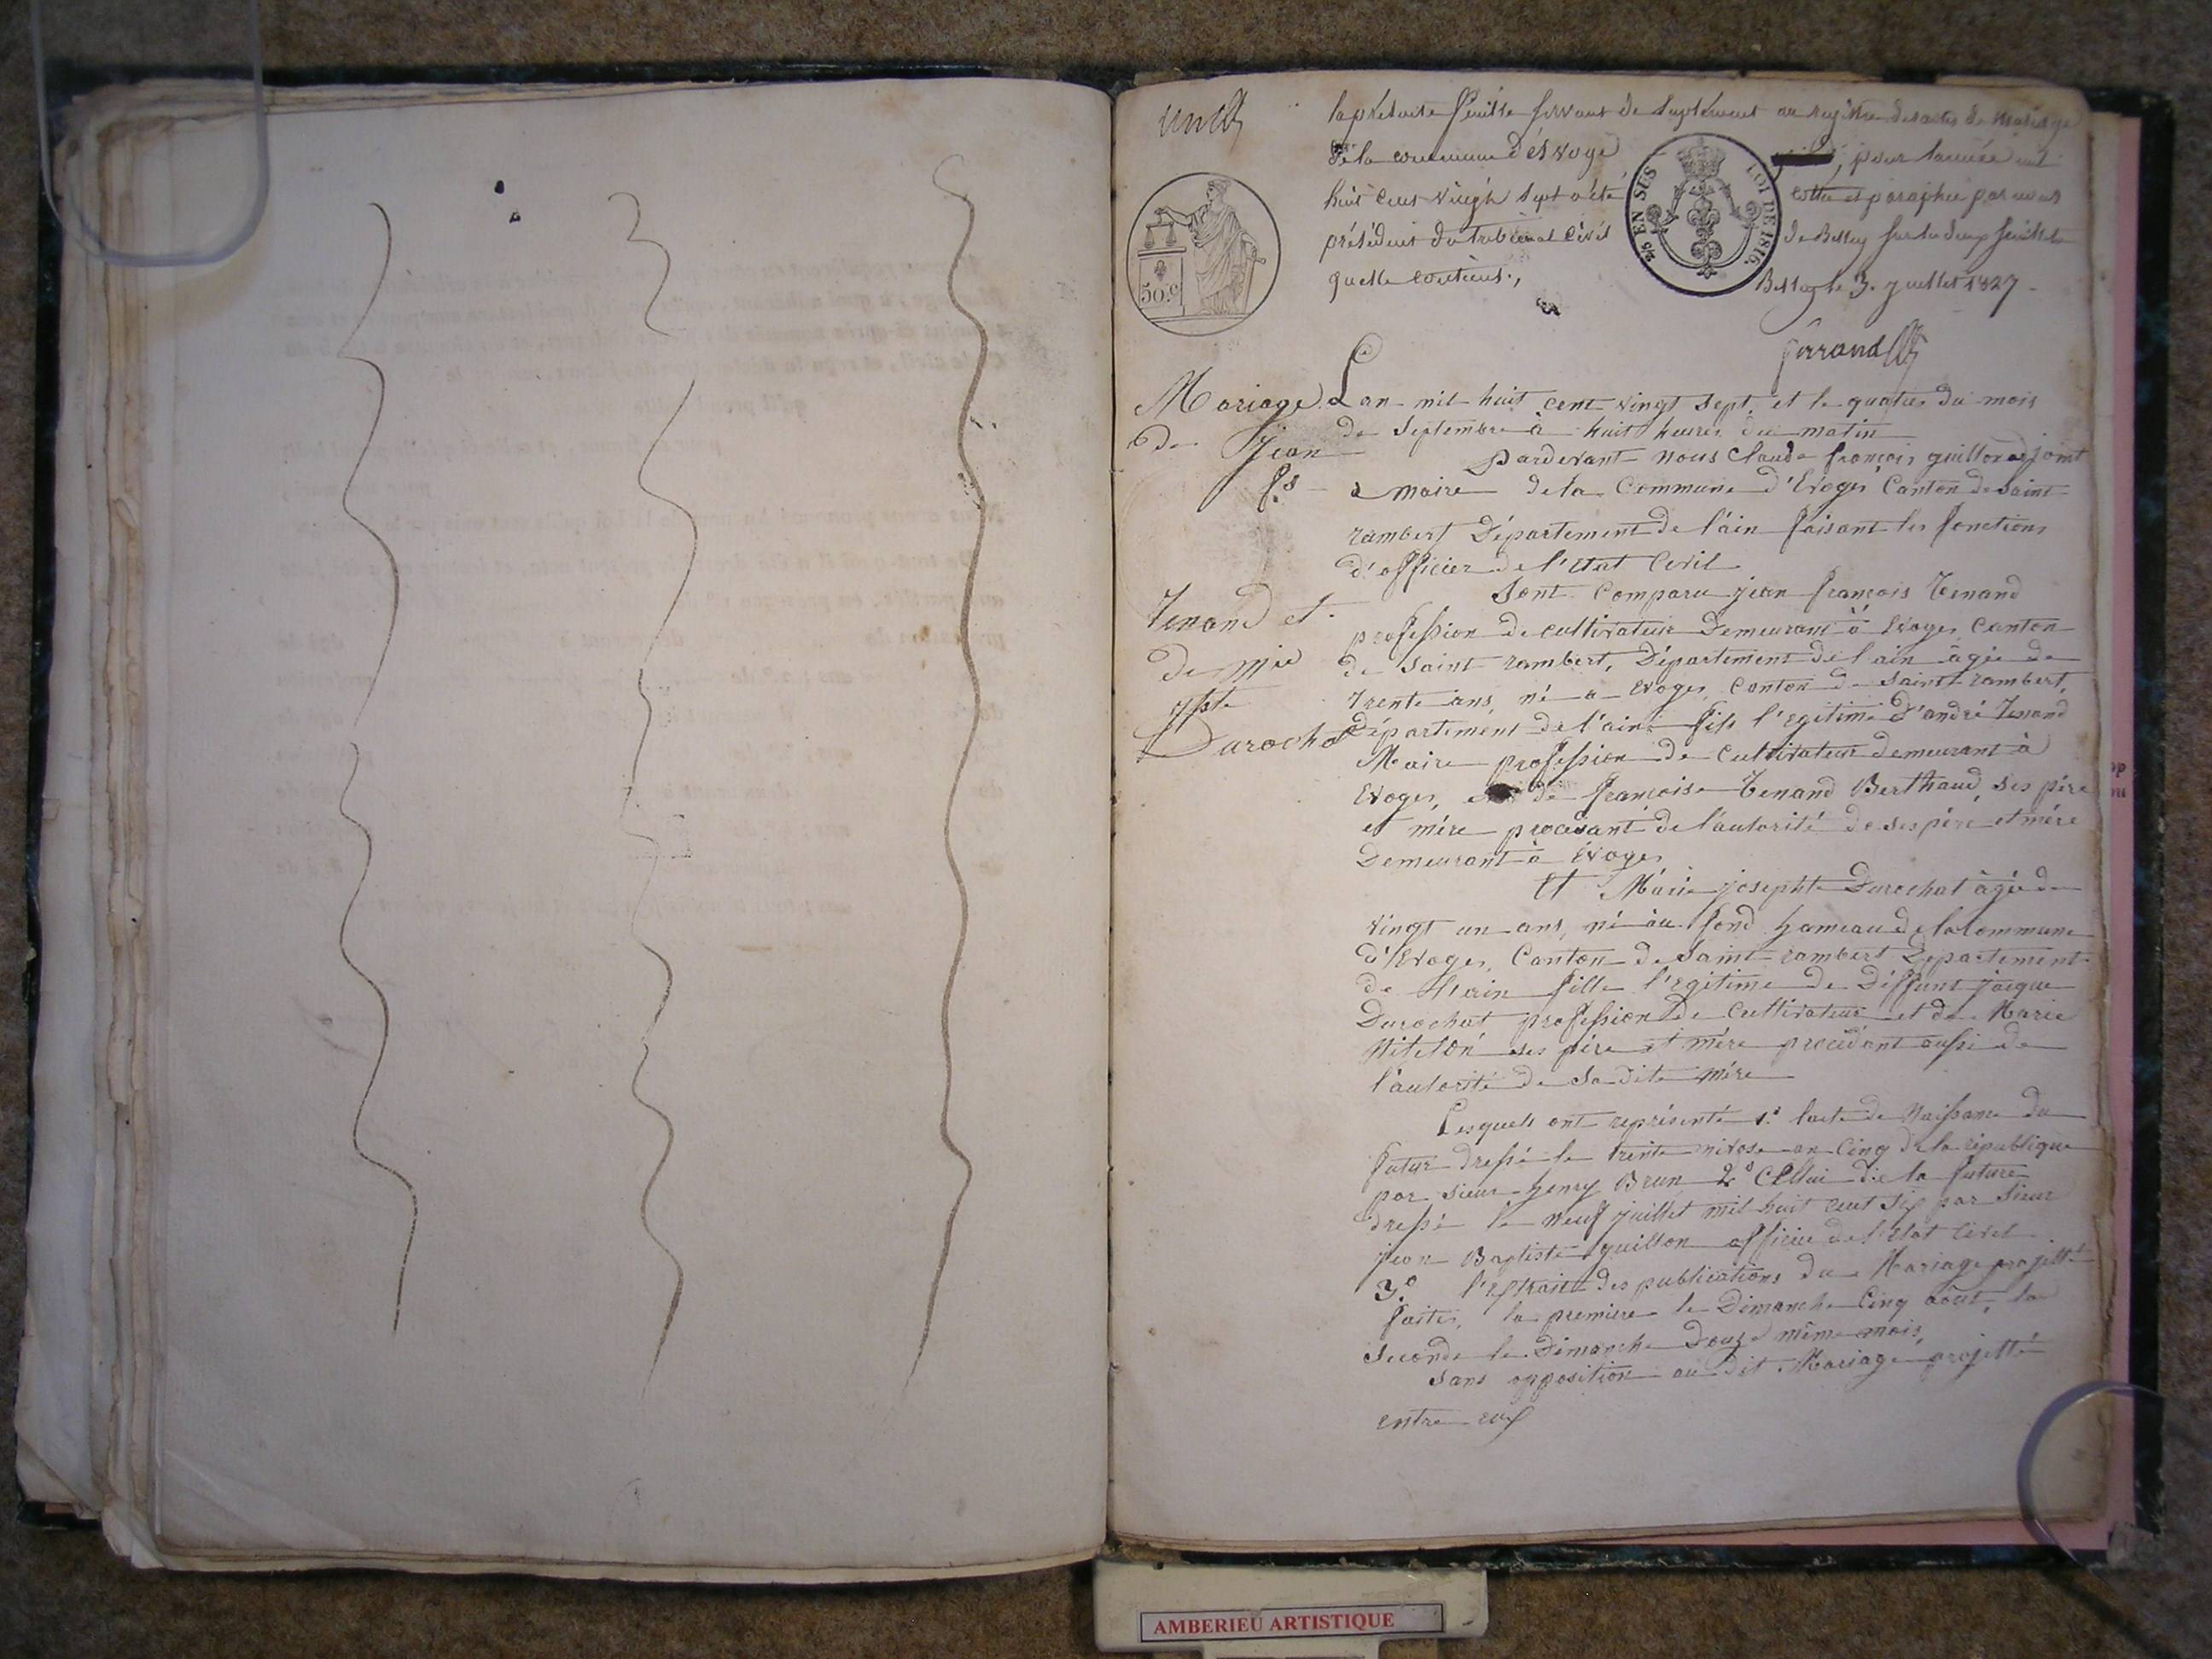 un
la présente feuille servant de suplément au registre des actes de mariage
de la commune d'Evoge pour l'année mil
huit cent vingt sept a été cottée et paraphée par nous
président du tribunal civil de Belley sur les deux feuillets
qu'elle contient.,
Belley le 3. juillet 1827
ferrand
50.c
2/5 EN SUS
LOI DE 1816.
Mariage
de Jean
fs
Tenand et
de Mie
jpte
Durochat
L'an mil huit cent vingt sept, et le quatre du mois
de Septembre à huit heures du matin
Pardevant nous Claude françois guillon adjoint
a maire de la Commune d'Evoges Canton de saint
rambert Département de l'ain faisant les fonctions
d'officier de l'etat Civil
Sont Comparu jean françois Tenand
profession de cultivateur Demeurant à Evoges Canton
de Saint rambert, Département de l'ain âgée de
trente ans, né a Evoges, Canton de Saint rambert,
Département de l'ain fils l'egitime D'andré Tenand
Maire profession de Cultivateur demeurant à
Evoges, de françoise Tenand Berthaud, ses père
et mére procedant de l'autorité de ses père et mére
Demeurant à Evoges
Et Marie josephte Durochat âgée de
vingt un ans, né au fond hameau de la Commune
d'Evoges, Canton de Saint rambert Département
de l'ain fille l'egitime de Deffunt jacque
Durochat profession de Cultivateur et de Marie
ses père et mére procedant aussi de
l'autorité de Sa dite Mére
Lesquels ont représenté 1.o lacte de Naissance du
futur dressé le trente nivose an Cinq de la république
par sieur henry Brun 2.o Cellui de la future
dressé le neuf juillet mil huit cent six par Sieur
jean Baptiste guillon officier de l'etat Civil
3.o l'extrait des publications du Mariage projetté
faites, la premiere le Dimanche Cinq août, la
seconde le Dimanche Douze même mois,
sans opposition au dit Mariage projetté
entre eux
AMBERIEU ARTISTIQUE